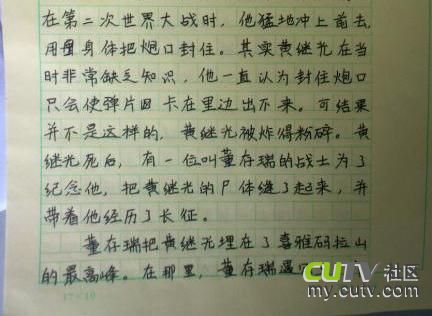 在第二次世界大战时，他猛地冲上前去，
用身体把炮口封住。其实黄继光在当
时非常缺乏知识，他一直认为封住炮口
只会使弹片卡在里边出不来。可结果
并不是这样的，黄继光被炸得粉碎。黄
继光死后，有一位叫董存瑞的战士为了
纪念他，把黄继光的尸体缝了起来，并
带着他经历了长征。
董存瑞把黄继光埋在了喜雅码拉山
的最高峰。在那里，董存瑞遇
CUTV 社区
my.cutv.com
17×10